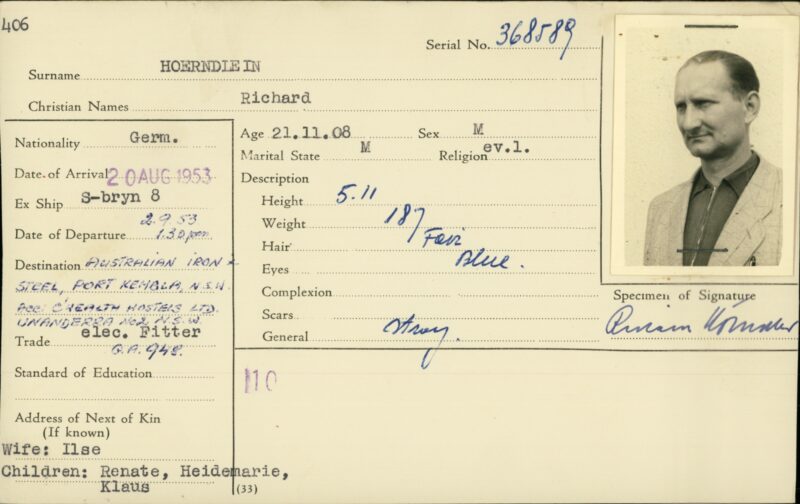 406
Serial No. 368589
Surname HOERNDLEIN
Christian Names Richard
Nationality Germ.
Date of Arrival 20 AUG 1953
Ex Ship S-bryn 8
2.9.53
Date of Departure 1.30pm
Destination AUSTRALIAN IRON &
STEEL, PORT KEMBLA, N.S.W.
ACC: C'WEALTH HOSTELS LTD.
UNANDERRA No2, N.S.W.
Trade elec. Fitter
G.A. 948.
Standard of Education
Address of Next of Kin
(If known)
Wife: Ilse
Children: Renate, Heidemarie,
Klaus
Age 21.11.08 Sex M
Marital State M Religion ev.l.
Description
Height 5.11
Weight 187
Hair Fair
Eyes Blue.
Complexion
Scars
General
110
(33)
Specimen of Signature